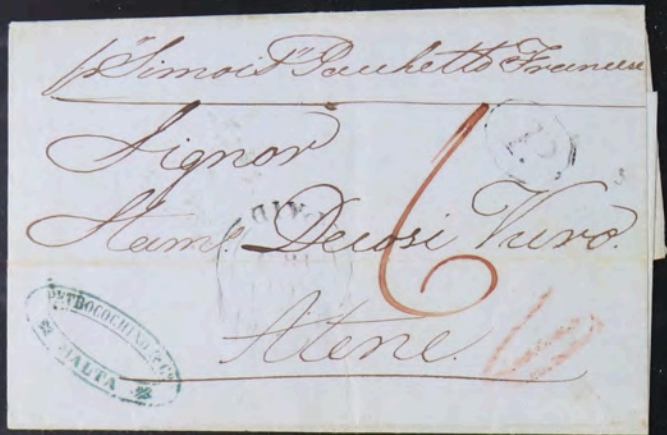 p "Simois" Pacchetto Francese
Signor
Stam. Decosi Vuro.
Atene.
6
PAID
PETROCOCHINO & Co
MALTA
10